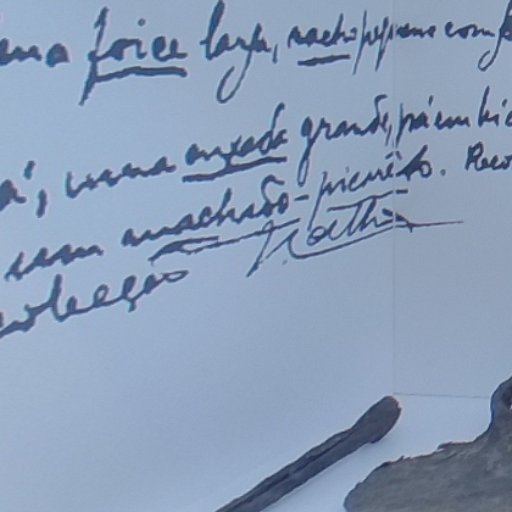 uma foice larga, machop pequeno com
uma enxada grande, pá em bi
um machado-picareta. Reco
colecção